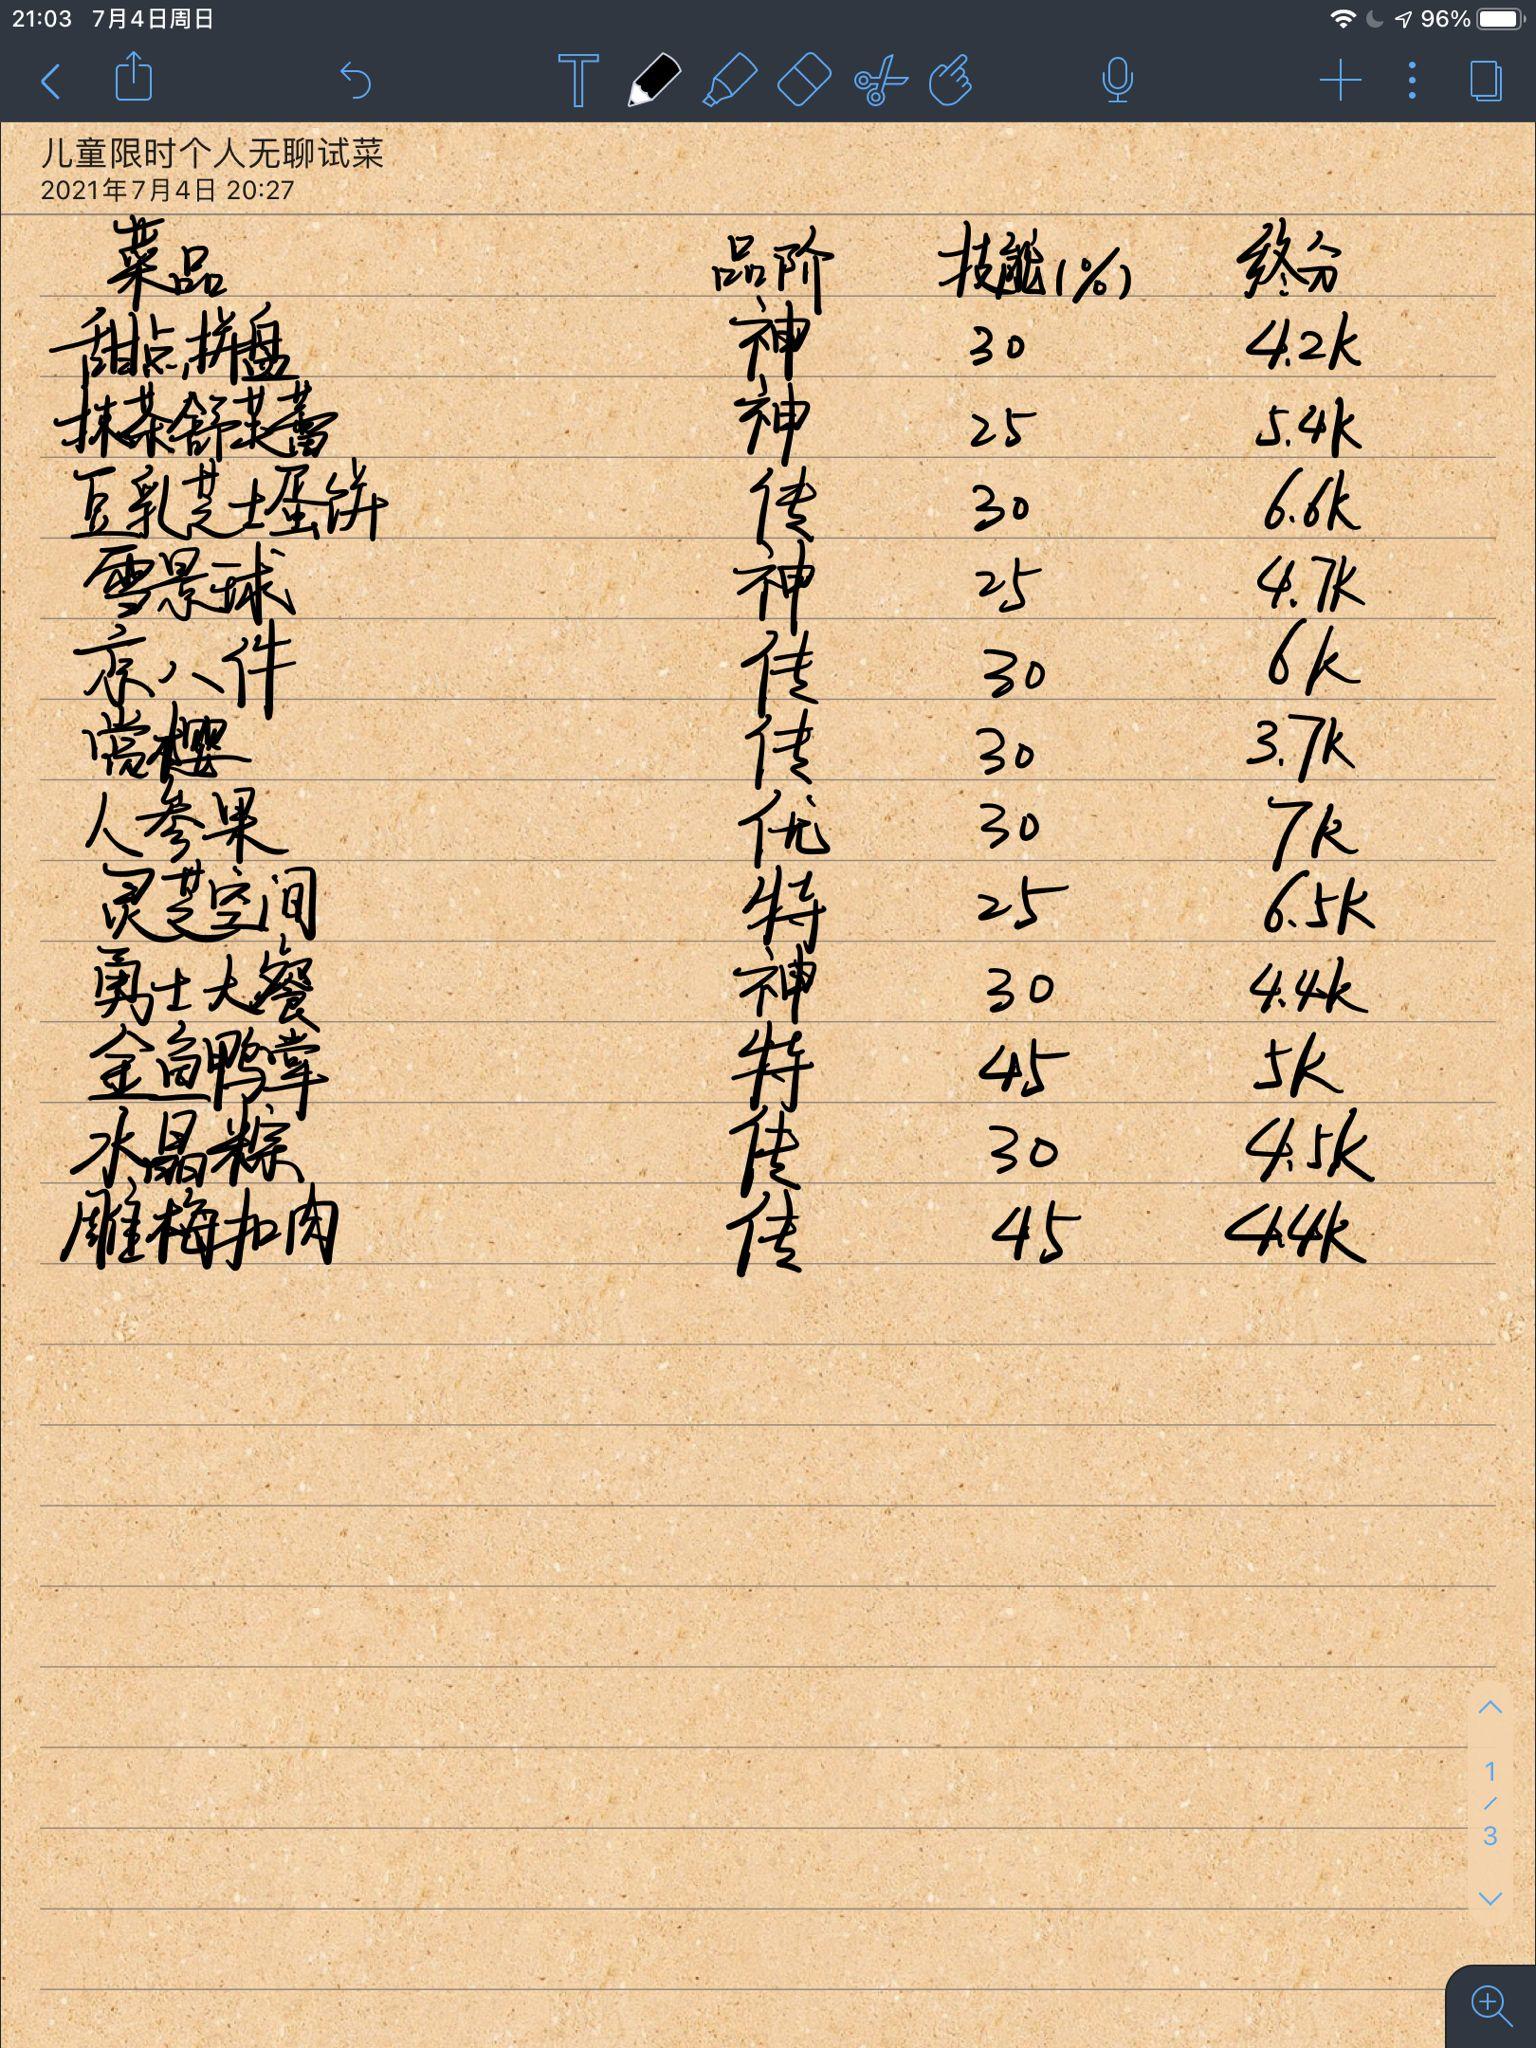 21:03 7月4日周日 96%
儿童限时个人无聊试菜
2021年7月4日 20:27
菜品 品阶 技能(%) 终分
甜点拼盘 神 30 4.2k
抹茶舒芙蕾 神 25 5.4k
豆乳芝士蛋饼 传 30 6.6k
雪景球 神 25 4.7k
京八件 传 30 6k
赏樱 传 30 3.7k
人参果 优 30 7k
灵芝空间 特 25 6.5k
勇士大餐 神 30 4.4k
金鱼鸭掌 特 45 5k
水晶粽 传 30 4.5k
雕梅扣肉 传 45 4.4k
1
/
3